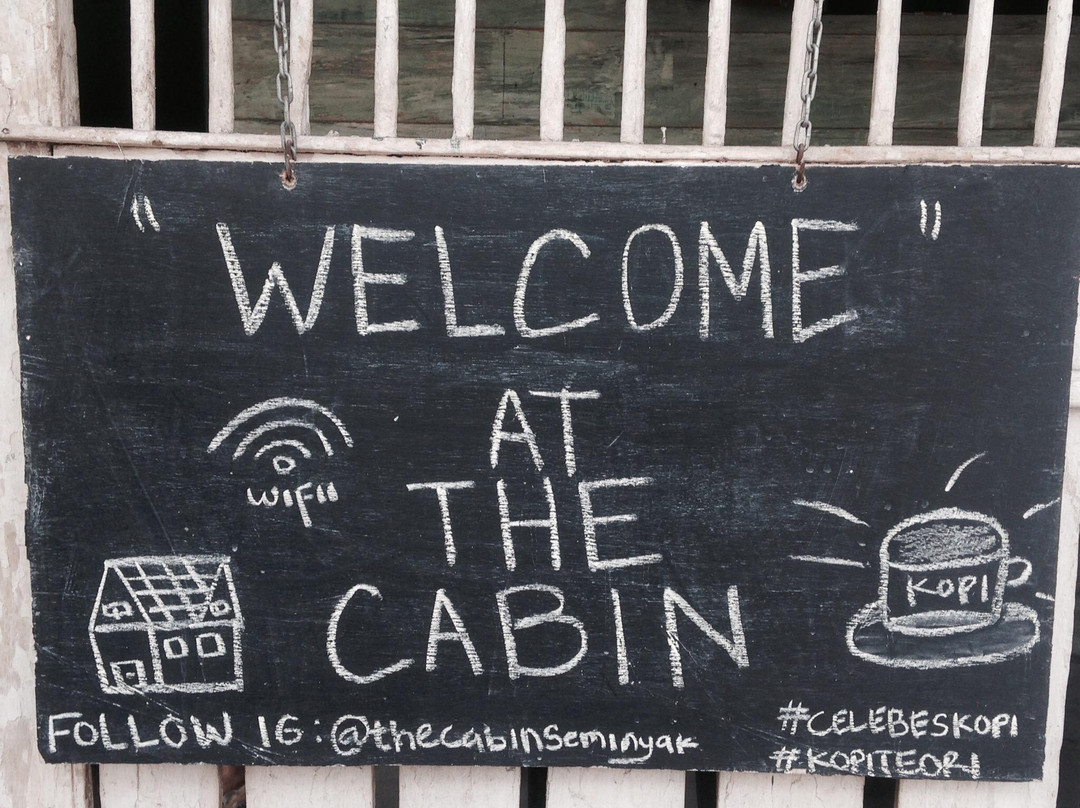 "WELCOME"
AT
THE
CABIN
WIFII
KOPI
FOLLOW IG: @thecabinseminyak
#CELEBESKOPI
#KOPITEORI